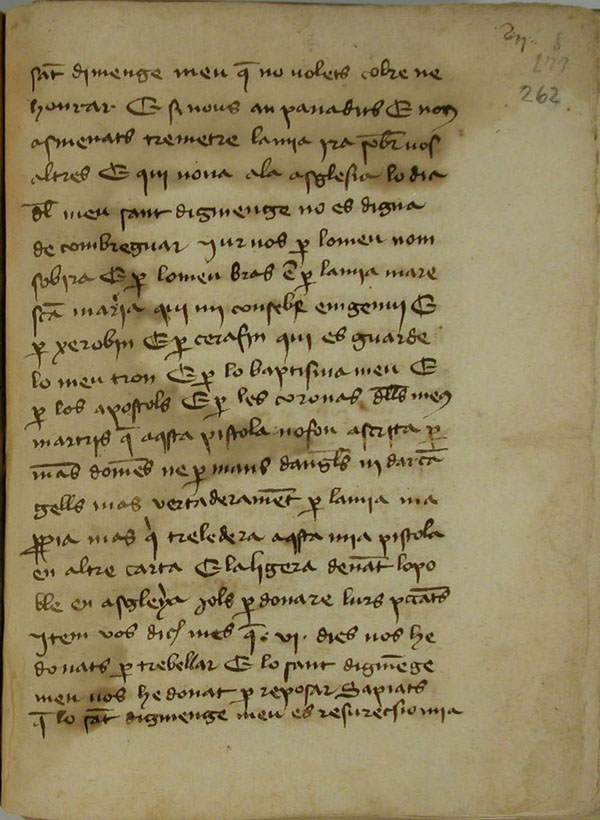 27. 8
277
262
sāt dimenge meu q̄ no volets colre ne
honrar E si nous an panadits E nous
asmenats tremetre lamia ira sobr̄ vos
altres E qui nova ala asglesia lo dia
dl̄ meu sant digmenge no es digna
de combreguar Jur vos ꝑ lomeu nom
sobira E ꝑ lomeu bras E ꝑ lamia mare
sc̄a maria qui mi conseb̄e emgenui E
ꝑ xerobin E ꝑ cerafin qui es guarde
lo meu tron E ꝑ lo baptisma meu E
ꝑ los apostols E ꝑ les coronas dl̄ls meus
martris q̄ aq̄sta pistola nofou ascrita ꝑ
mās domēs ne ꝑ mans dangl̄s ni darcā
gells mas vertaderamēt ꝑ lamia ma
ꝓpia mas qi treledera aq̄sta mia pistola
en altre carta E laligera denāt lopo
ble en asgleya jols ꝑdonare lurs pccats
Item vos dich mes q̄ .vi. dies vos he
donats ꝑ trebellar E lo sant digmēge
meu vos he donat ꝑ reposar Sapiats
q̄ lo sāt digmenge meu es resurecsio mia